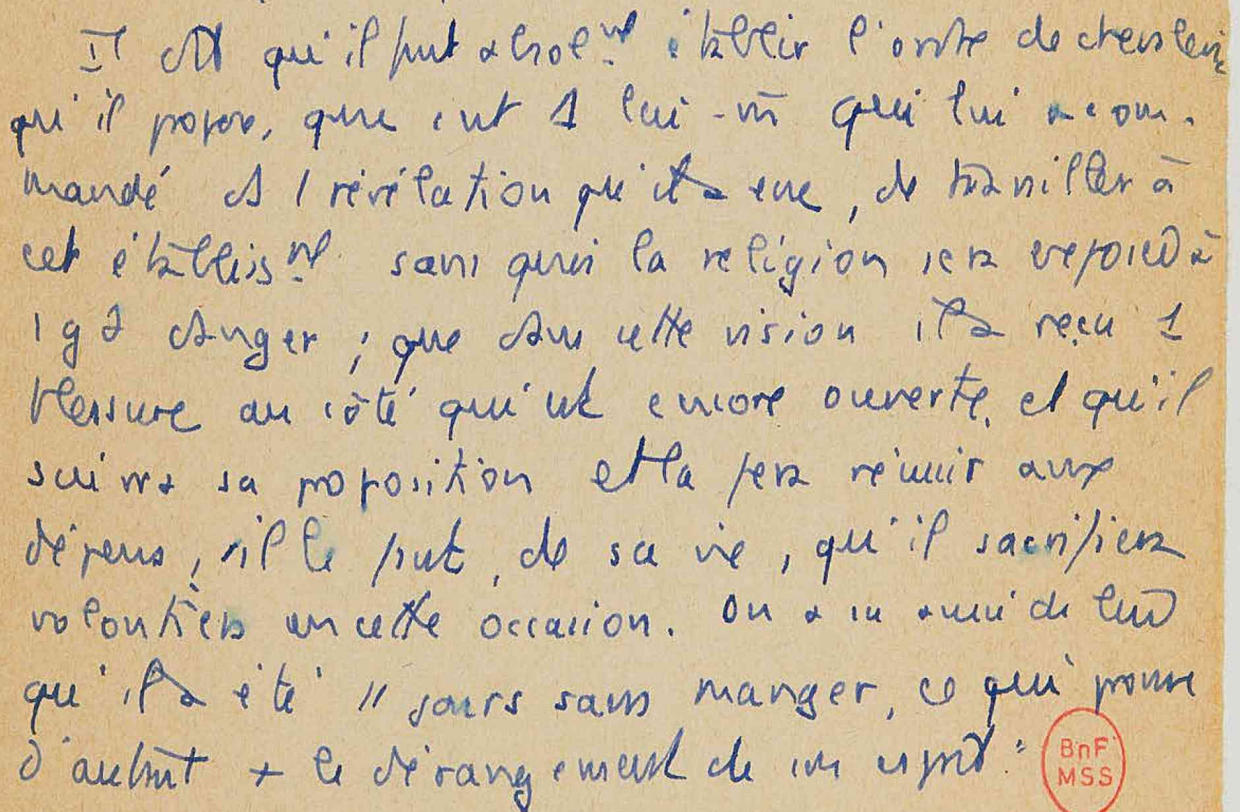 Il dit qu'il faut absol.nt établir l'ordre de chevalerie
qu'il propose, que c'est 1 lui-m̄ qui lui a com-
mandé ds 1 révélation qu'il a eue, de travailler à
cet établiss.nt sans quoi la religion sera exposée à
1 gd danger ; que dans cette vision il a reçu 1
blessure au côté qui est encore ouverte, et qu'il
suivra sa proposition et la fera réussir aux
dépens, s'il le faut, de sa vie, qu'il sacrifiera
volontiers en cette occasion. On a su aussi de lui
qu'il a été 11 jours sans manger, ce qui prouve
d'autant + le dérangement de son esprit."
BnF
MSS